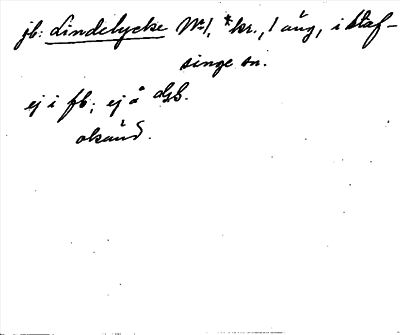 jb: Lindelycke No 1, *kr., 1 äng, i Staf-
singe sn.
ej i fb; ej å dsb.
okänd.